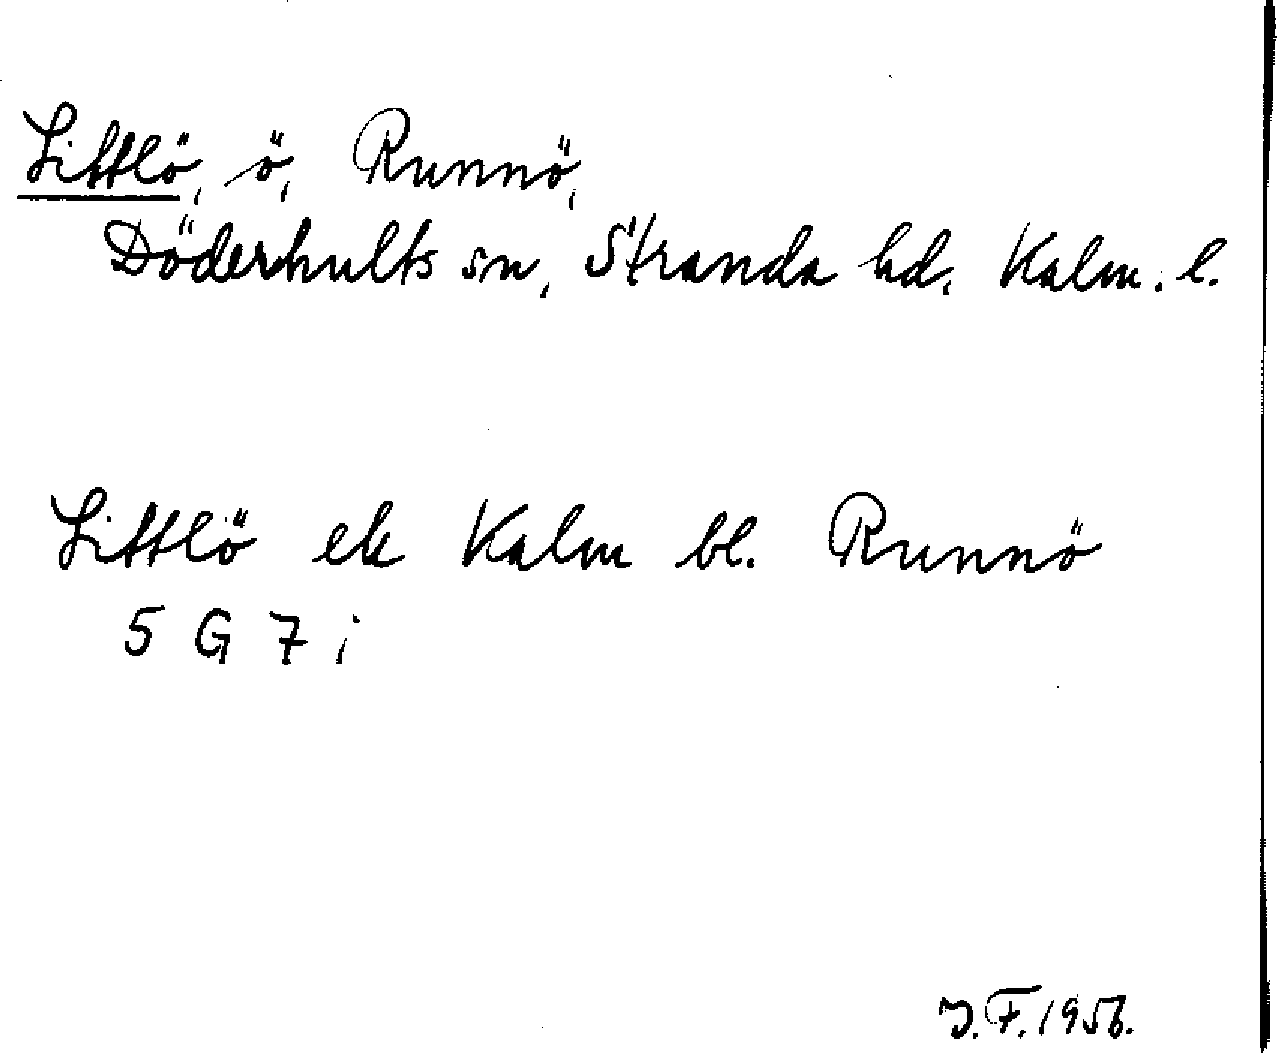 Littlö, ö, Runnö,
Döderhults sn, Stranda hd, Kalm. l.
Littlö ek Kalm bl. Runnö
5 G 7 i
J. F. 1956.